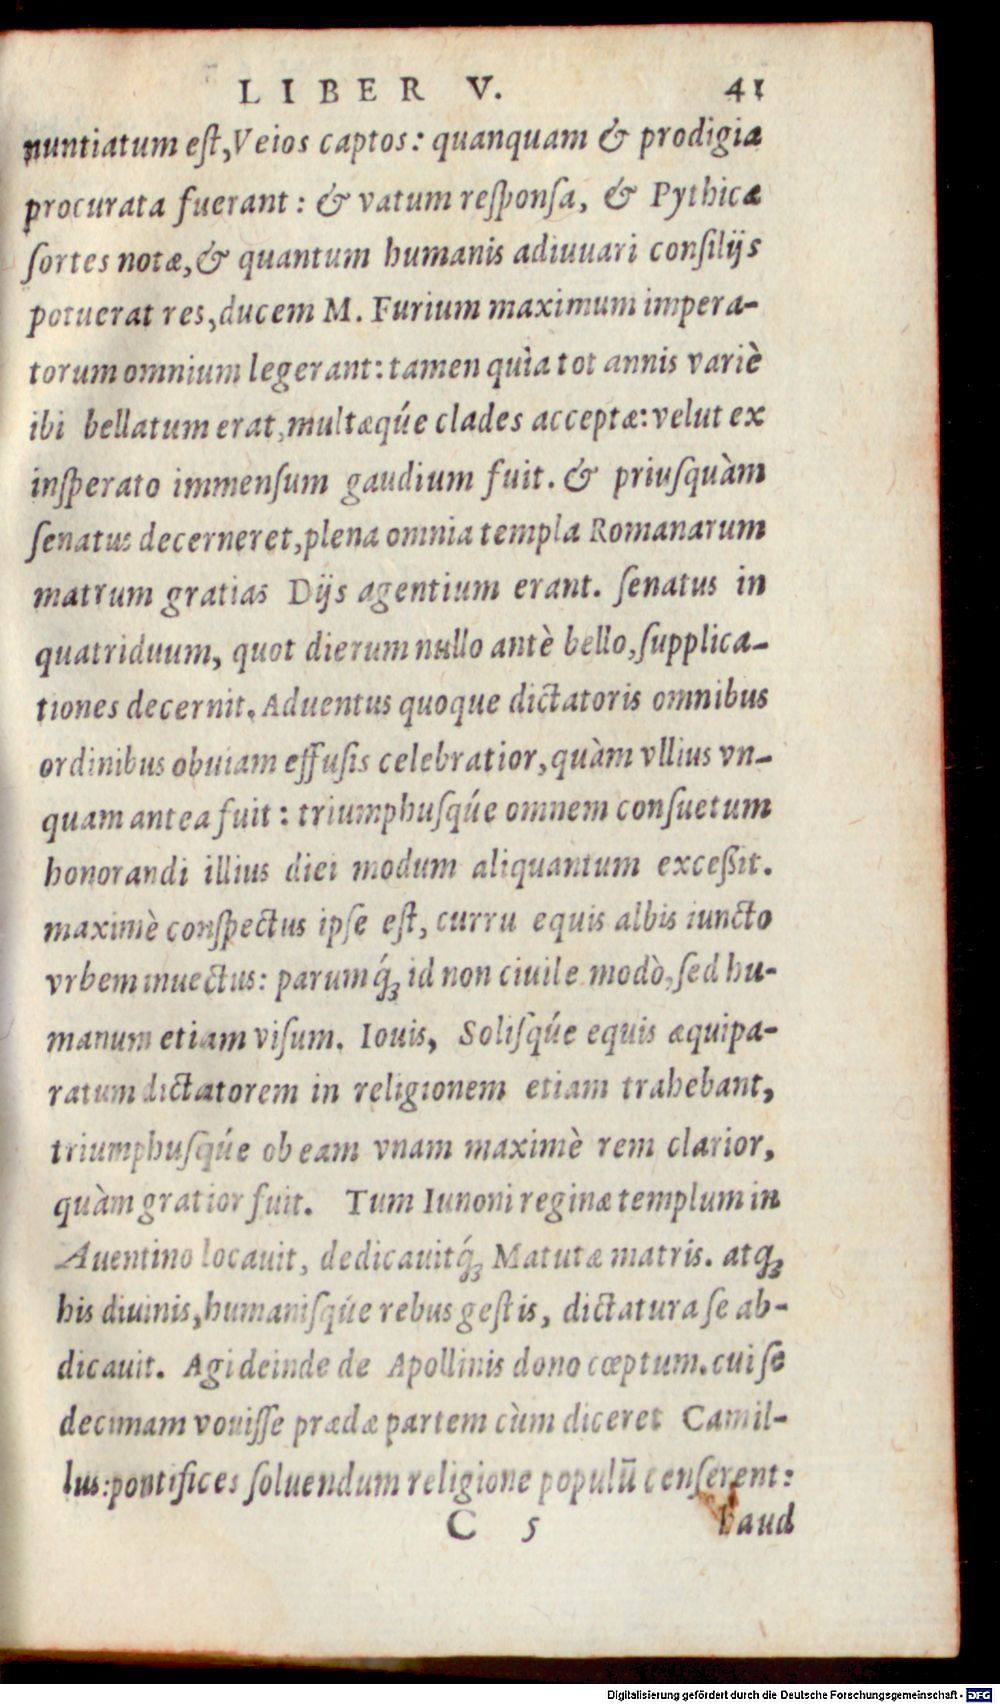 LIBER V. 41
nuntiatum eſt, Veios captos: quanquam & prodigia
procurata fuerant: & vatum reſponſa, & Pythicæ
ſortes notæ, & quantum humanis adiuuari conſilijs
potuerat res, ducem M. Furium maximum impera-
torum omnium legerant: tamen quìa tot annis variè
ibi bellatum erat, multæqúe clades acceptæ: velut ex
inſperato immenſum gaudium fuit. & priuſquàm
ſenatus decerneret, plena omnia templa Romanarum
matrum gratias Dijs agentium erant. ſenatus in
quatriduum, quot dierum nullo antè bello, ſupplica-
tiones decernit. Aduentus quoque dictatoris omnibus
ordinibus obuiam effuſis celebratior, quàm vllius vn-
quam antea fuit: triumphuſqúe omnem conſuetum
honorandi illius diei modum aliquantum exceßit.
maximè conſpectus ipſe eſt, curru equis albis iuncto
vrbem inuectus: parumq́ꝫ id non ciuile modò, ſed hu-
manum etiam viſum. Iouis, Soliſqúe equis æquipa-
ratum dictatorem in religionem etiam trahebant,
triumphuſqúe ob eam vnam maximè rem clarior,
quàm gratior fuit. Tum Iunoni reginæ templum in
Auentino locauit, dedicauitq́ꝫ Matutæ matris. atqꝫ
his diuinis, humaniſqúe rebus geſtis, dictatura ſe ab-
dicauit. Agi deinde de Apollinis dono cœptum. cui ſe
decimam vouiſſe prædæ partem cùm diceret Camil-
lus: pontifices ſoluendum religione populũ cenſerent:
C 5 haud
Digitalisierung gefördert durch die Deutsche Forschungsgemeinschaft - DFG